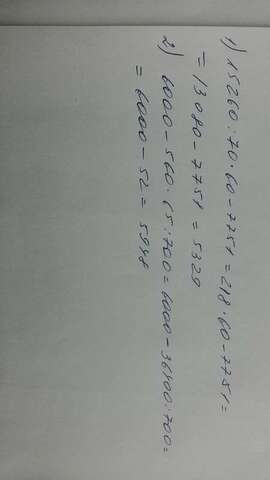 1) 15260:70·60-7751=218·60-7751=
=13080-7751=5329
2) 6000-560·65:700=6000-36400:700=
=6000-52=5948